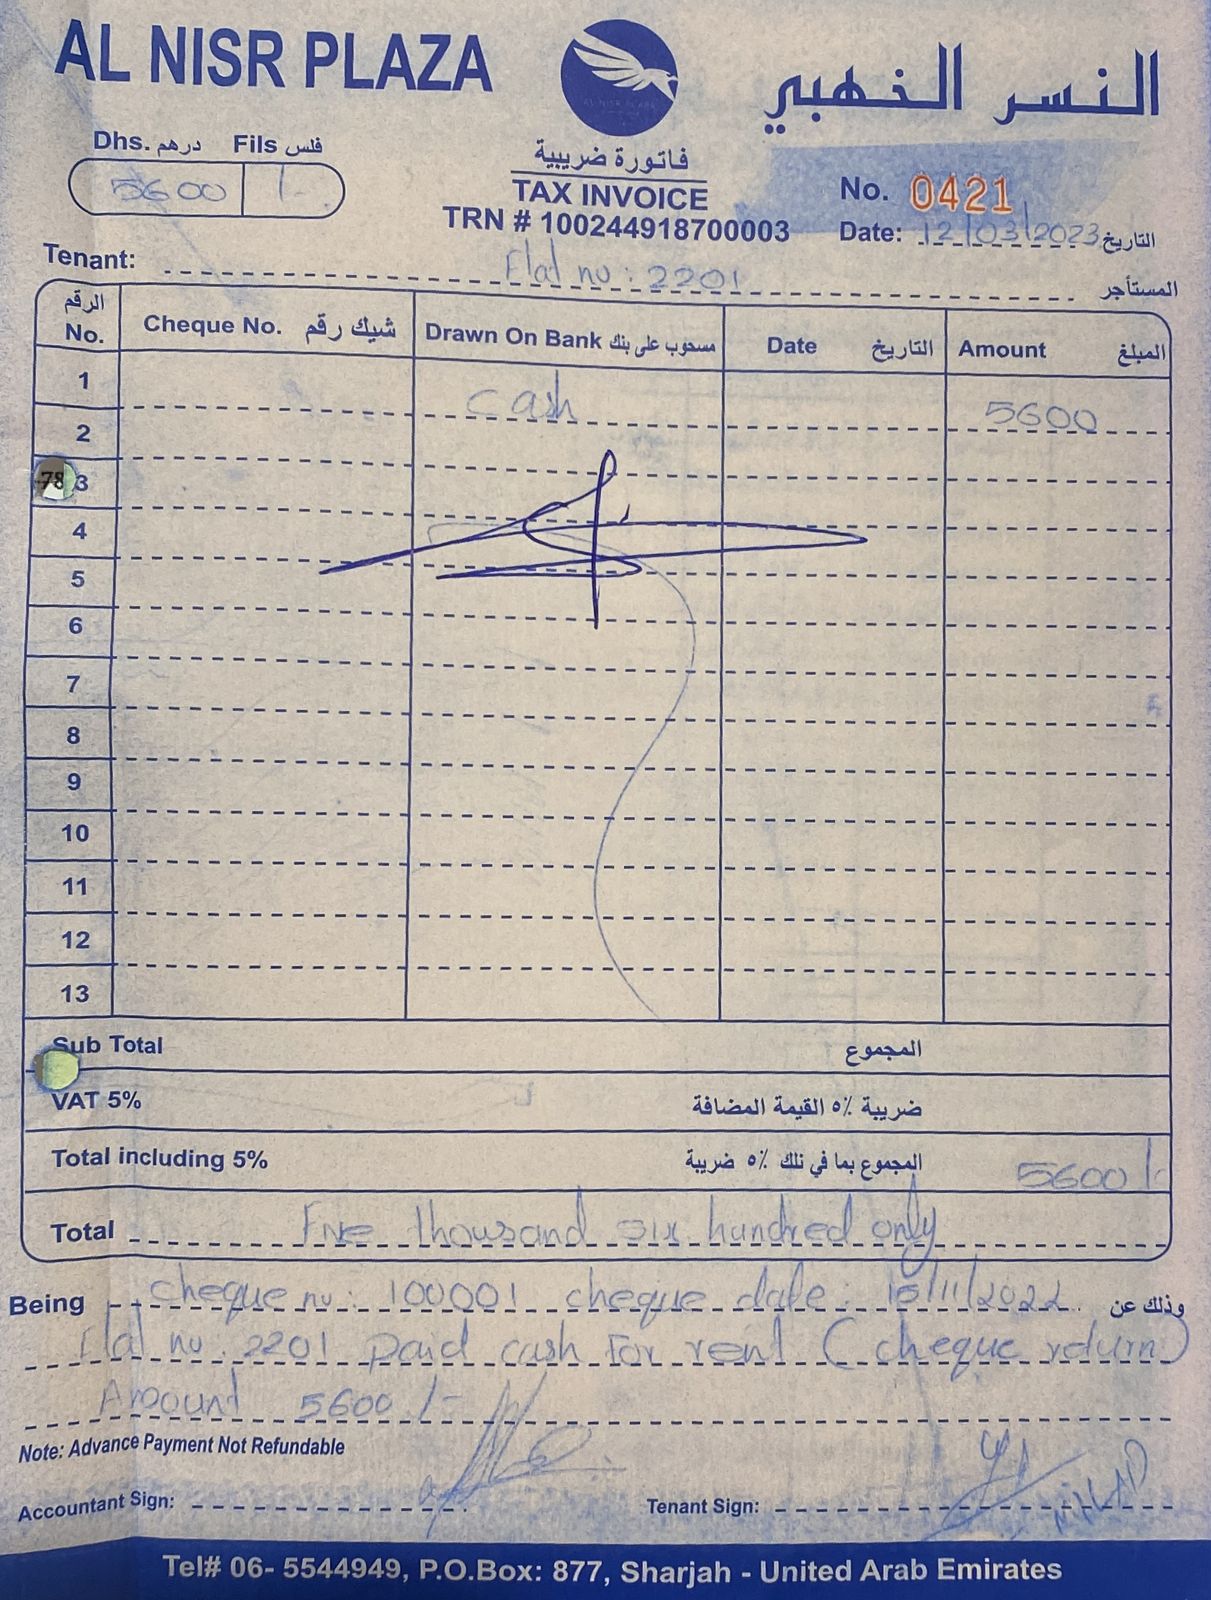 AL NISR PLAZA
النسر الذهبي
Dhs. درهم Fils فلس
5600 /-
فاتورة ضريبية
TAX INVOICE
TRN # 100244918700003
No. 0421
Date: 12/03/2023 التاريخ
Tenant: Flat no: 2201 المستأجر
الرقم No. Cheque No. شيك رقم Drawn On Bank مسحوب على بنك Date التاريخ Amount المبلغ
1 cash 5600
2
78 3
4
5
6
7
8
9
10
11
12
13
Sub Total المجموع
VAT 5% ضريبة ٥٪ القيمة المضافة
Total including 5% المجموع بما في تلك ٥٪ ضريبة 5600/-
Total Five thousand six hundred only
Being cheque no: 100001 cheque date: 15/11/2022 وذلك عن
Flat no: 2201 paid cash for rent (cheque return)
Amount 5600/-
Note: Advance Payment Not Refundable
Accountant Sign: Tenant Sign:
Tel# 06- 5544949, P.O.Box: 877, Sharjah - United Arab Emirates